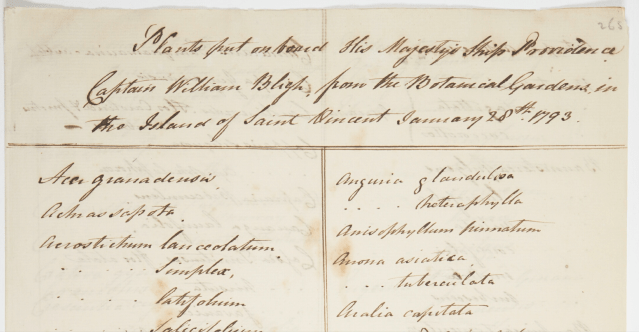 263
Plants put on board His Majesty's Ship Providence
Captain William Bligh, from the Botanical Gardens, in
the Island of Saint Vincent January 28th. 1793.
Acer granadensis
Achras sapota.
Acrostichum lanceolatum
. . . . simplex,
. . . . latifolium
. . . . salicifolium
Anguria glandulosa
. . . . heteraphylla
Anisophyllum pinnatum
Anona asiatica
. . . . tuberculata
Aralia capitata